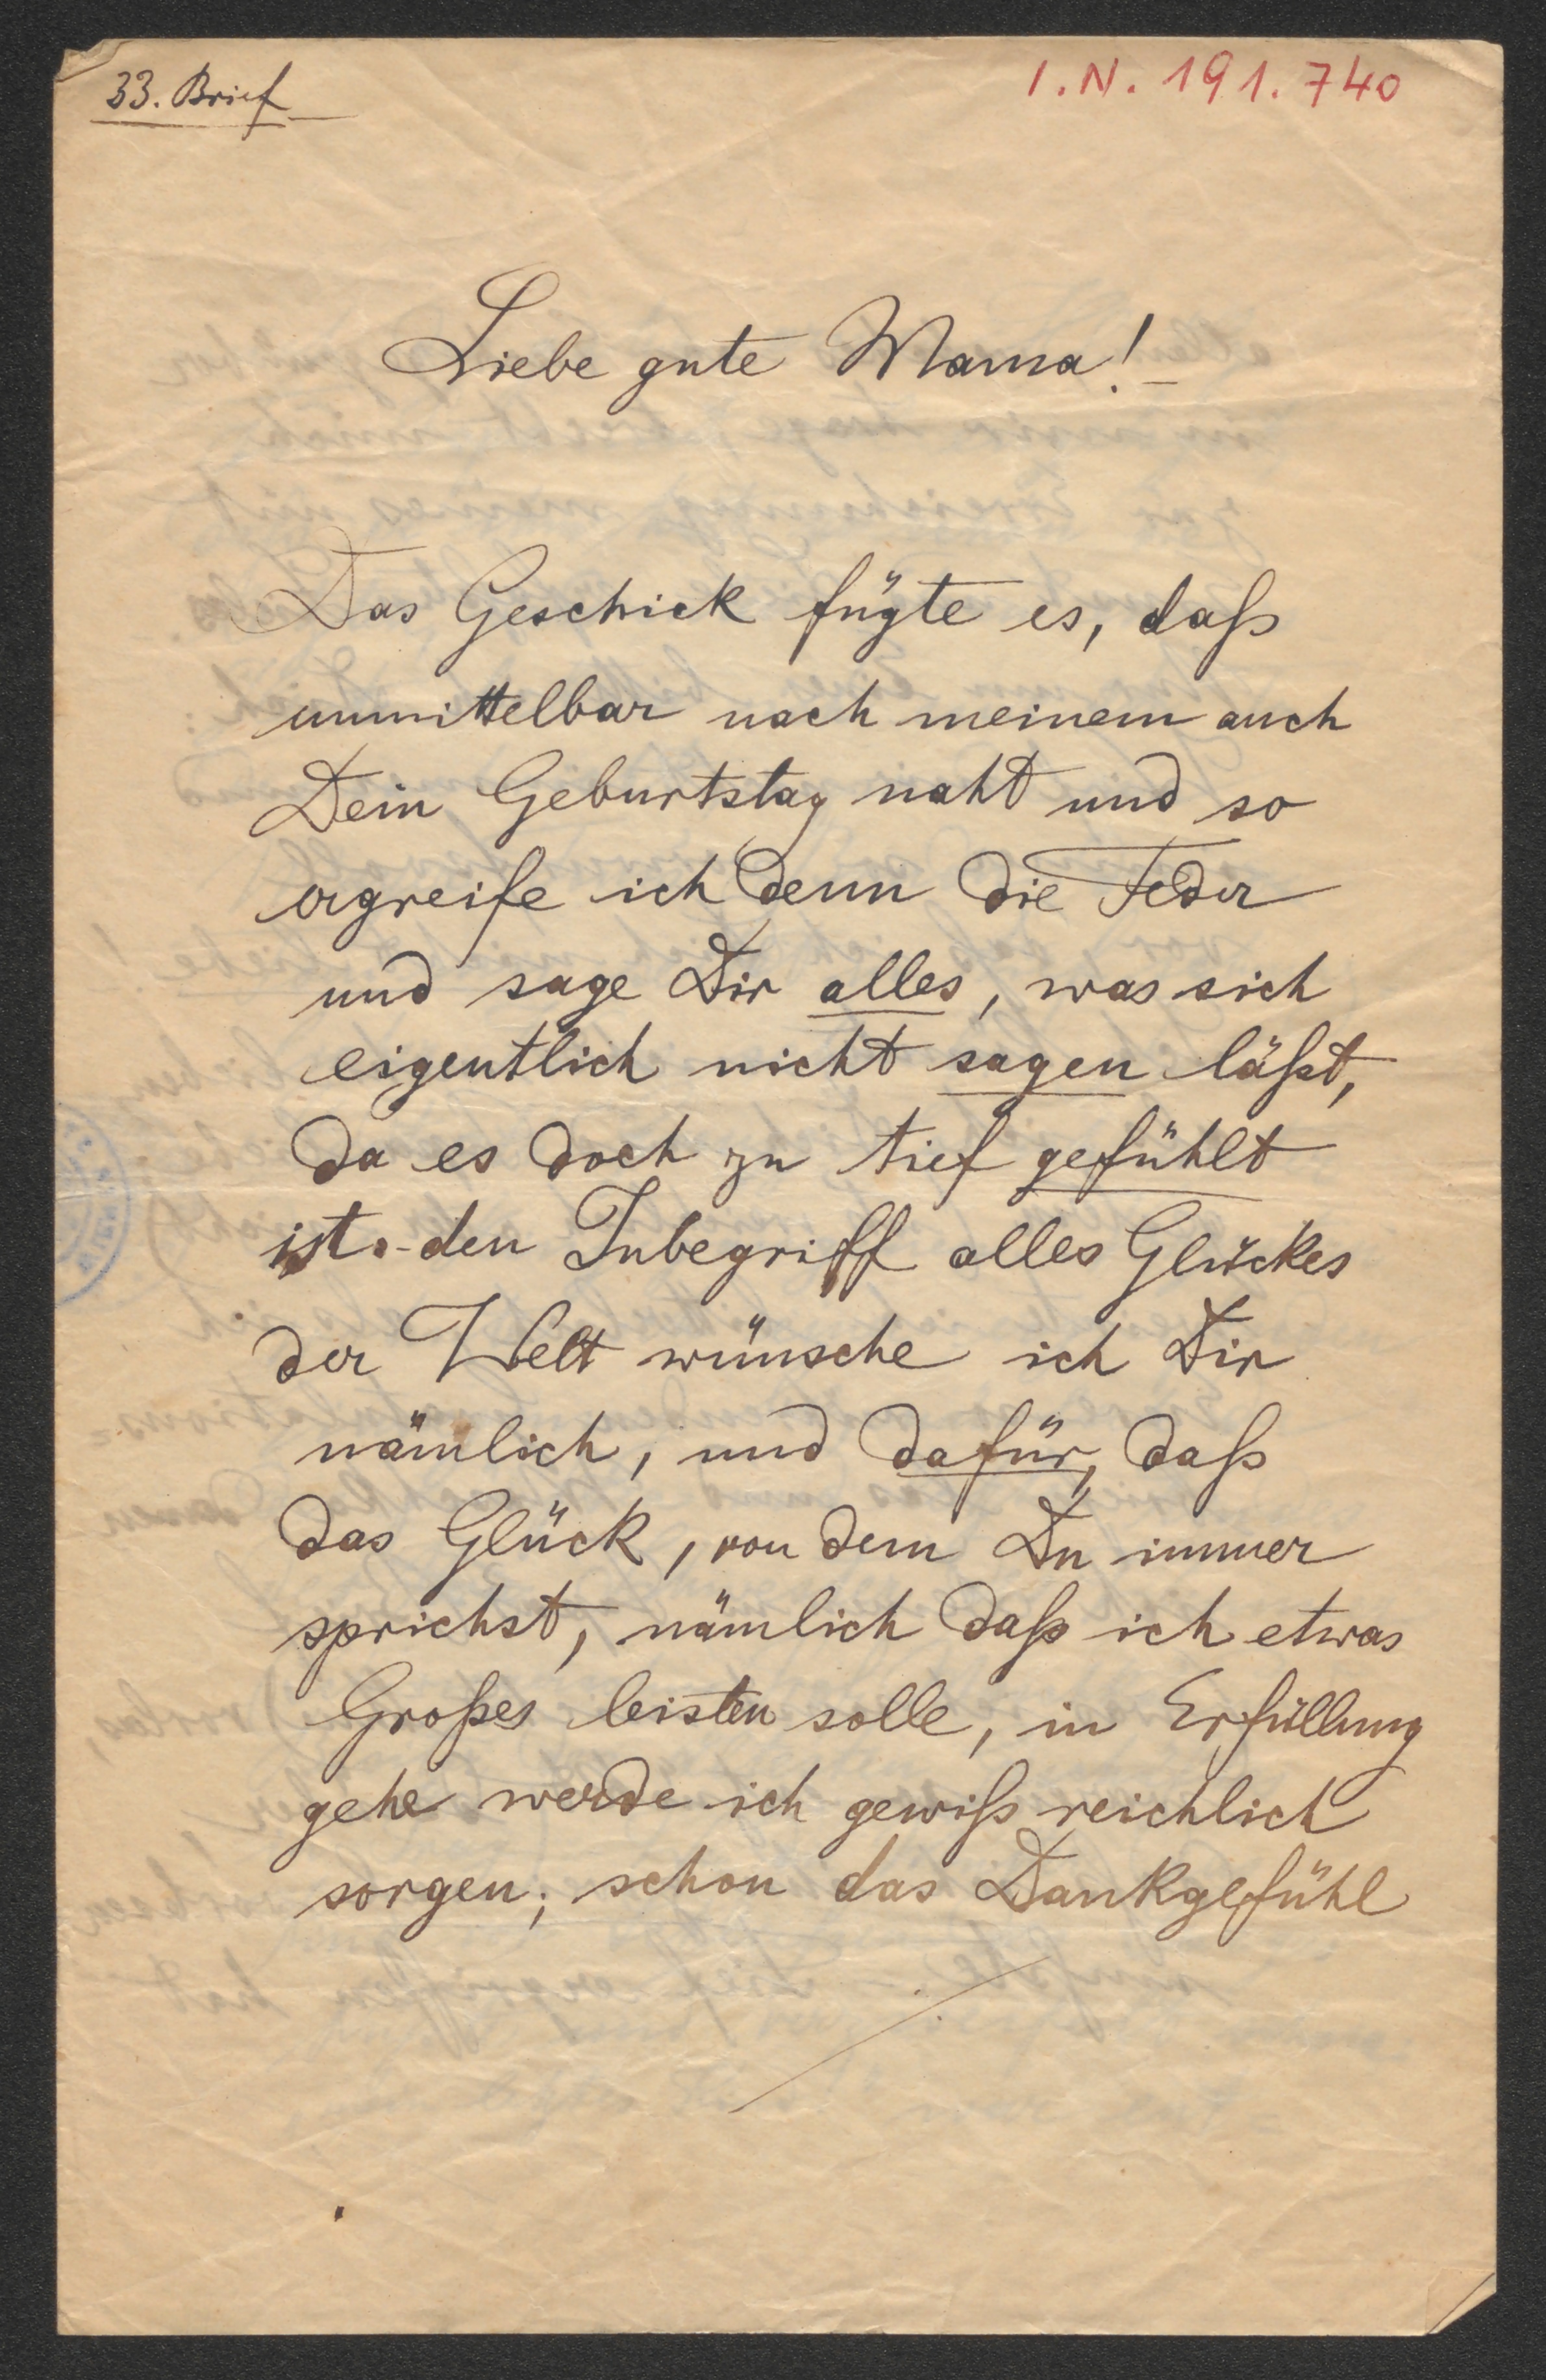 33. Brief
I.N. 191.740
Liebe gute Mama! –
Das Geschick fügte es, daß
unmittelbar nach meinem auch
Dein Geburtstag naht und so
ergreife ich denn die Feder
und sage Dir alles, was sich
eigentlich nicht sagen läßt,
da es doch zu tief gefühlt
ist. – den Inbegriff alles Glückes
der Welt wünsche ich Dir
nämlich, und dafür, daß
das Glück, von dem Du immer
sprichst, nämlich daß ich etwas
Großes leisten solle, in Erfüllung
gehe werde ich gewiß reichlich
sorgen; schon das Dankgefühl
./.